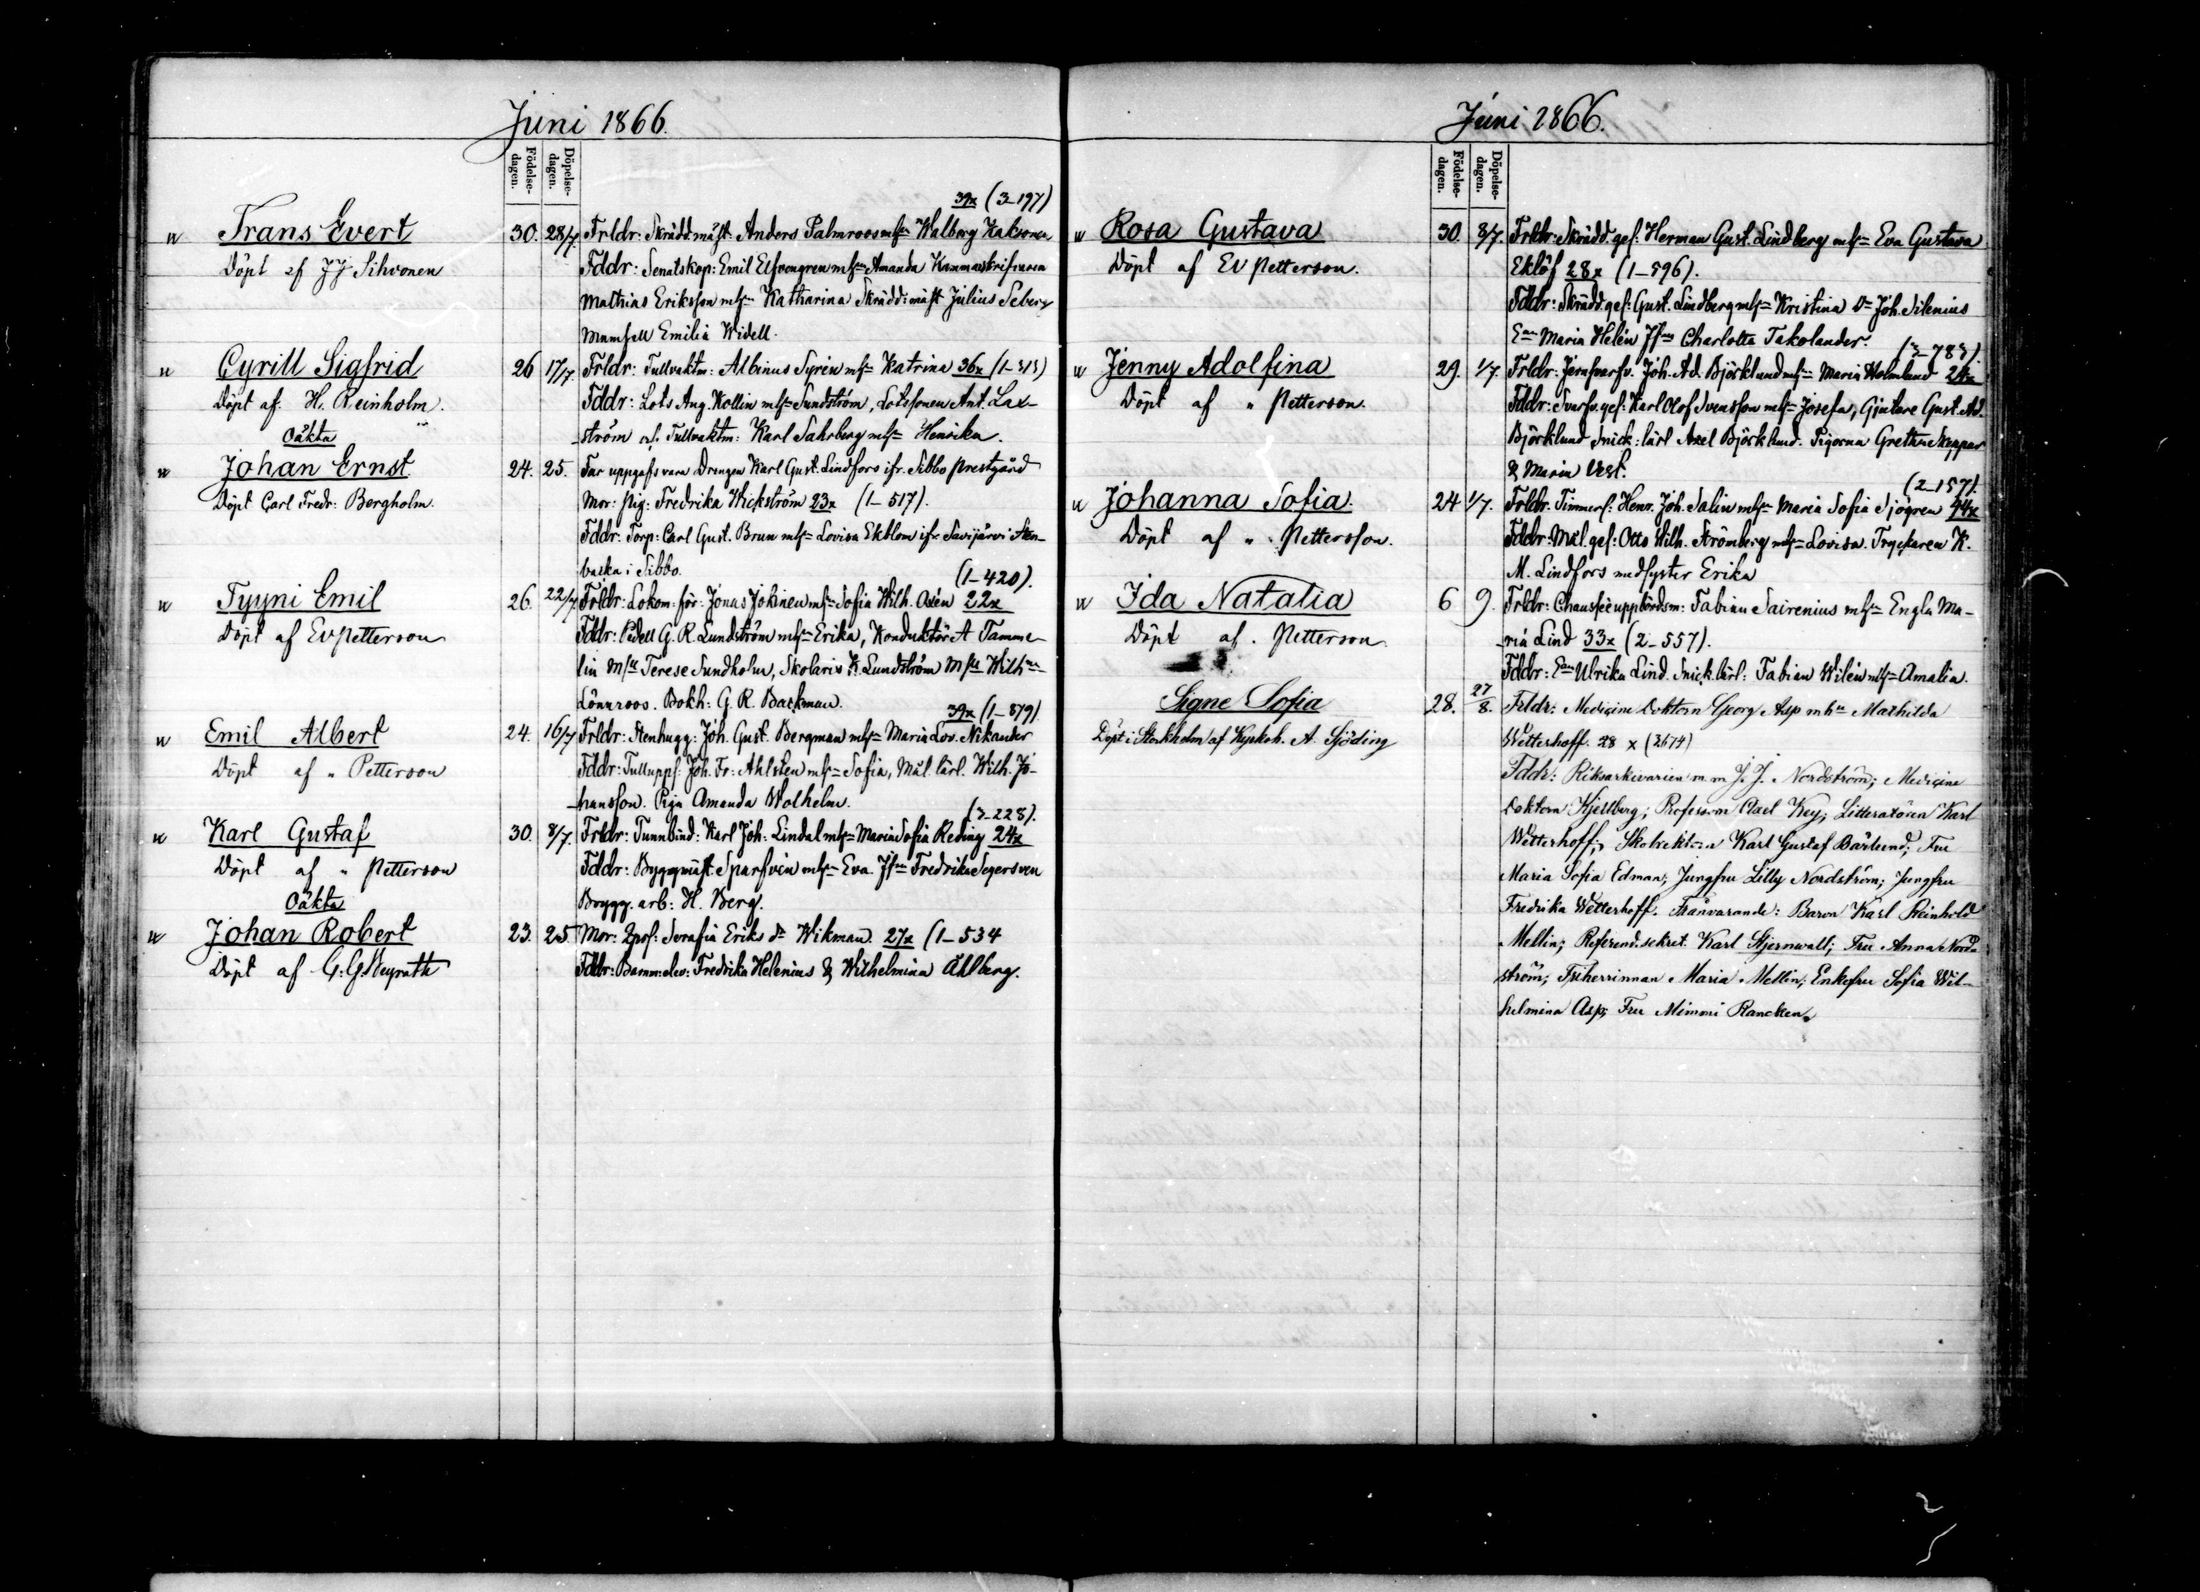 Juni 1866.
Födelse-dagen.
Döpelse-dagen.
39x (3-197)
w Frans Evert 30. 28/7 Frldr: Skrädd.mäst: Anders Palmroos mh Walborg Kaksonen
Döpt af J J Sihvonen Fddr: Senatskop: Emil Elfvengren mh Amanda
Mathias Eriksson mh Katharina Skrädd:mäst Julius Seberg
Mamsell Emilia Widell.
w Cyrill Sigfrid 26 17/7. Frldr: Tullvaktm: Albinus Syrén mh Katrina 36x (1-313)
Döpt af. H. Reinholm. Fddr: Lots Aug. Kollin mh Sundström, Lotssonen Ant. Lax-
Oäkta -ström Tullvaktm: Karl Sahrberg mh Henrika.
w Johan Ernst 24. 25. Far uppgafs vara Drengen Karl Gust. Lindfors ifr. Sibbo Prestgård
Döpt Carl Fredr: Bergholm. Mor: Pig: Fredrika Wickström 23x (1-517).
Fddr: Torp: Carl Gust. Brun mh Lovisa Ekblom ifr Savijärvi Sten-
backa i Sibbo. (1-420).
w Tyyni Emil 26. 22/7 Frldr: Lokom: för: Jonas Jokinen mh Sofia Wilh. Osén 22x
Döpt af Ev Petterson Fddr: Pedell G. R. Lundström mh Erika, Konduktör A Tamme-
lin Mll Terese Sundholm, Skolaris K. Lundström Mll Wilhna
Lönnroos. Bokh: G. R. Backman. 39x (1-879)
w Emil Albert 24. 16/7 Frldr: Stenhugg: Joh. Gust. Bergman mh Maria Lov. Nikander
Döpt af " Petterson Fddr: Tulluppf: Joh. Fr: Ahlsten mh Sofia, Mål. lärl. Wilh. Jo-
-hansson. Piga Amanda Wolhelm. (3-228).
w Karl Gustaf 30. 8/7. Frldr: Tunnbind: Karl Joh: Lindal mh Maria Sofia Reding 24x
Döpt af " Petterson Fddr: Byggmäst. Sparfvin mh Eva. Jfn Fredrika Segersven
Oäkta Brygg. arb: H. Berg.
w Johan Robert 23. 25. Mor: Eriks dr Wikman. 27x (1-534
Döpt af G: G Fddr: Barnm:elev: Fredrika Helenius & Wilhelmina Åhlberg.
Juni 1866.
Födelse-dagen.
Döpelse-dagen.
w Rosa Gustava 30. 8/7. Frldr: Skrädd. ges: Herman Gust. Lindberg mh Eva Gustava
Döpt af Ev Petterson. Eklöf 28x (1-596).
Fddr: Skrädd. ges: Gust. Lindberg mh Kristina Dr Joh. Silenius
Maria Helén Jfn Charlotta Takolander. (3-783).
w Jenny Adolfina 29. 1/7. Frldr: Jernsvarfv. Joh. Ad. Björklund mh Maria Holmlund 24x
Döpt af " Petterson. Fddr: Svarfv. ges: Karl Olof Svensson mh Josefa, Gjutare Gust. Ad.
Björklund Snick: lärl Axel Björklund. Pigorna Gretha Keppar
& Maria Vest. (2-157).
w Johanna Sofia. 24 1/7. Frldr: Timmerk: Henr. Joh. Salin mh Maria Sofia Sjögren 44x
Döpt af " Pettersson. Fddr: Mål. ges: Otto Wilh. Strömberg mh Lovisa. Tryckaren K.
M. Lindfors med syster Erika
w Ida Natalia 6 9. Frldr: Chausséeuppbördsm: Fabian Sairenius mh Engla Ma-
Döpt af. Petterson. -ria Lind 33x (2-557).
Fddr: Ulrika Lind. Snick. lärl: Fabian Wilén mh Amalia.
Signe Sofia 28. 27/8. Frldr: Medicine Doktorn Georg Asp mh Mathilda
Döpt i Stockholm af Kyrkoh. A. Sjöding Wetterhoff. 28 x (2674)
Fddr: Riksarkivarien m m J. J. Nordström; Medicine
Doktorn Kjellberg; Professorn Axel Key; Litteratören Karl
Wetterhoff; Skolrektorn Karl Gustaf Bärlund; Fru
Maria Sofia Edman; Jungfru Lilly Nordström; Jungfru
Fredrika Wetterhoff. Frånvarande: Baron Karl Reinhold
Mellin; Referend.sekret. Karl Stjernvall; Fru Anna Nord-
ström; Friherrinnan Maria Mellin; Enkefru Sofia Wil-
helmina Asp; Fru Mimmi Rancken.